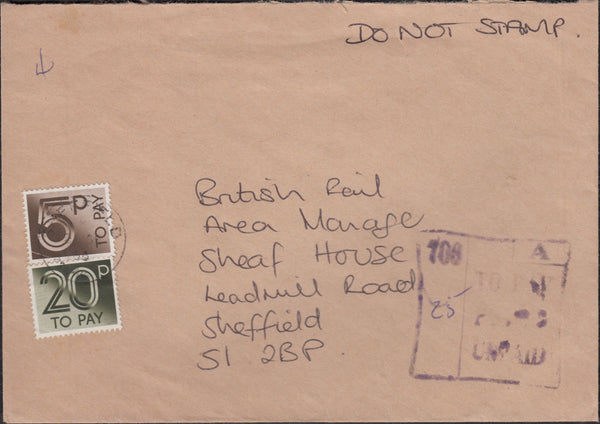 DO NOT STAMP.
5p
TO PAY
20p
TO PAY
British Rail
Area Manage
Sheaf House
Leadmill Road
Sheffield
S1 2BP.
706 A
TO PAY
25
UNPAID